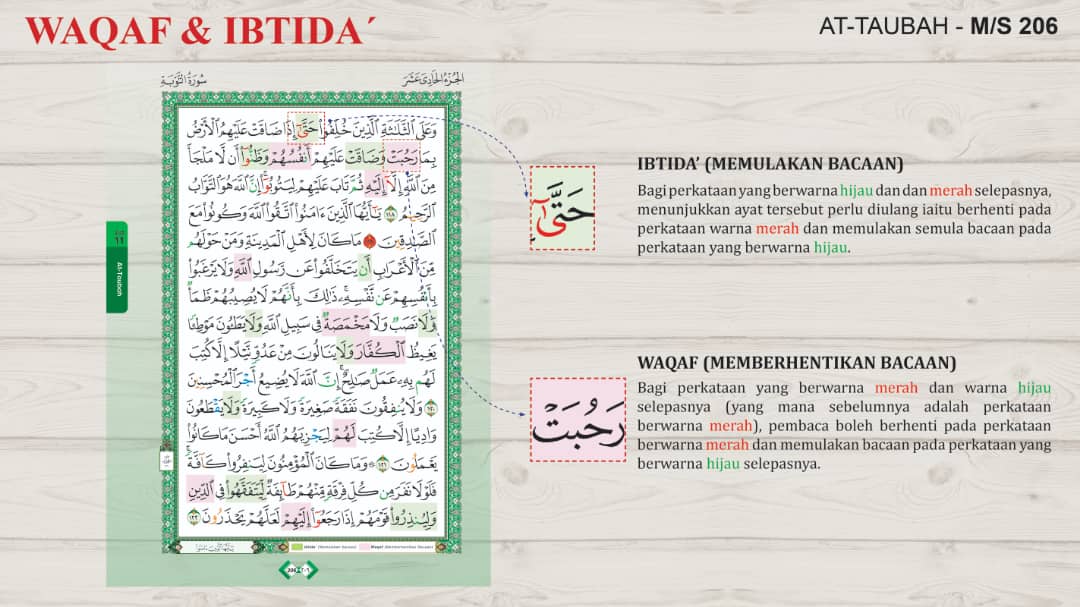 WAQAF & IBTIDA´
AT-TAUBAH - M/S 206
سُورَةُ التَّوْبَةِ
الجُزْءُ الحَادِي عَشَرَ
وَعَلَى ٱلثَّلَـٰثَةِ ٱلَّذِينَ خُلِّفُوا۟ حَتَّىٰٓ إِذَا ضَاقَتْ عَلَيْهِمُ ٱلْأَرْضُ
بِمَا رَحُبَتْ وَضَاقَتْ عَلَيْهِمْ أَنفُسُهُمْ وَظَنُّوٓا۟ أَن لَّا مَلْجَأَ
مِنَ ٱللَّهِ إِلَّآ إِلَيْهِ ثُمَّ تَابَ عَلَيْهِمْ لِيَتُوبُوٓا۟ إِنَّ ٱللَّهَ هُوَ ٱلتَّوَّابُ
ٱلرَّحِيمُ ١١٨ يَـٰٓأَيُّهَا ٱلَّذِينَ ءَامَنُوا۟ ٱتَّقُوا۟ ٱللَّهَ وَكُونُوا۟ مَعَ
ٱلصَّـٰدِقِينَ ١١٩ مَا كَانَ لِأَهْلِ ٱلْمَدِينَةِ وَمَنْ حَوْلَهُم
مِّنَ ٱلْأَعْرَابِ أَن يَتَخَلَّفُوا۟ عَن رَّسُولِ ٱللَّهِ وَلَا يَرْغَبُوا۟
بِأَنفُسِهِمْ عَن نَّفْسِهِۦ ۚ ذَٰلِكَ بِأَنَّهُمْ لَا يُصِيبُهُمْ ظَمَأٌ
وَلَا نَصَبٌ وَلَا مَخْمَصَةٌ فِى سَبِيلِ ٱللَّهِ وَلَا يَطَـُٔونَ مَوْطِئًا
يَغِيظُ ٱلْكُفَّارَ وَلَا يَنَالُونَ مِنْ عَدُوٍّ نَّيْلًا إِلَّا كُتِبَ
لَهُم بِهِۦ عَمَلٌ صَـٰلِحٌ ۚ إِنَّ ٱللَّهَ لَا يُضِيعُ أَجْرَ ٱلْمُحْسِنِينَ
١٢٠ وَلَا يُنفِقُونَ نَفَقَةً صَغِيرَةً وَلَا كَبِيرَةً وَلَا يَقْطَعُونَ
وَادِيًا إِلَّا كُتِبَ لَهُمْ لِيَجْزِيَهُمُ ٱللَّهُ أَحْسَنَ مَا كَانُوا۟
يَعْمَلُونَ ١٢١ وَمَا كَانَ ٱلْمُؤْمِنُونَ لِيَنفِرُوا۟ كَآفَّةً ۚ
فَلَوْلَا نَفَرَ مِن كُلِّ فِرْقَةٍ مِّنْهُمْ طَآئِفَةٌ لِّيَتَفَقَّهُوا۟ فِى ٱلدِّينِ
وَلِيُنذِرُوا۟ قَوْمَهُمْ إِذَا رَجَعُوٓا۟ إِلَيْهِمْ لَعَلَّهُمْ يَحْذَرُونَ ١٢٢
11
At-Taubah
Ibtida´ (Memulakan Bacaan)
Waqaf (Memberhentikan Bacaan)
206
٢٠٦
حَتَّىٰٓ إِ
IBTIDA’ (MEMULAKAN BACAAN)
Bagi perkataan yang berwarna hijau dan dan merah selepasnya,
menunjukkan ayat tersebut perlu diulang iaitu berhenti pada
perkataan warna merah dan memulakan semula bacaan pada
perkataan yang berwarna hijau.
رَحُبَتْ
WAQAF (MEMBERHENTIKAN BACAAN)
Bagi perkataan yang berwarna merah dan warna hijau
selepasnya (yang mana sebelumnya adalah perkataan
berwarna merah), pembaca boleh berhenti pada perkataan
berwarna merah dan memulakan bacaan pada perkataan yang
berwarna hijau selepasnya.